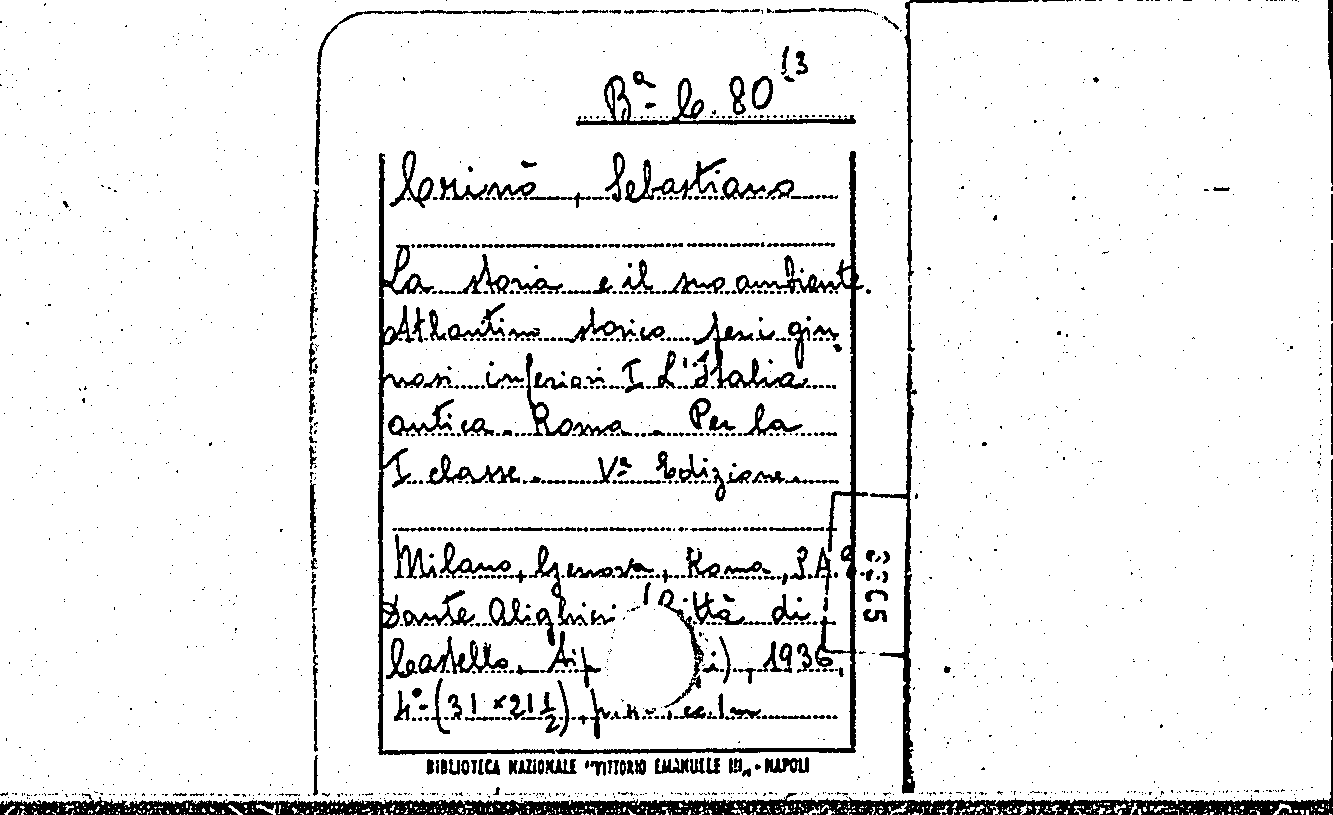 Bª c. 80 (3
Crinò, Sebastiano
La storia e il suo ambiente.
Atlantino storico per i gin-
nasi inferiori I L'Italia
antica. Roma. Per la
I classe. Vª Edizione.
Milano, Genova, Roma, S.A.
Dante Alighieri (Città di
Castello, Tip. i), 1936,
4º (31 × 21 1/2), p.
BIBLIOTECA NAZIONALE "VITTORIO EMANUELE III" - NAPOLI